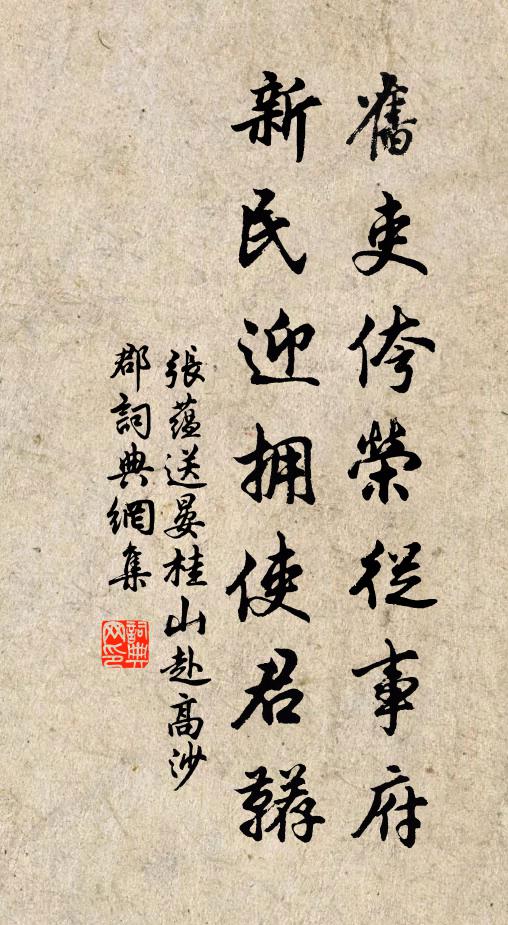 舊吏侉榮從事府
新民迎拥使君鞯
張蕴送晏桂山赴高沙
郡詞典網集
詞典
网印